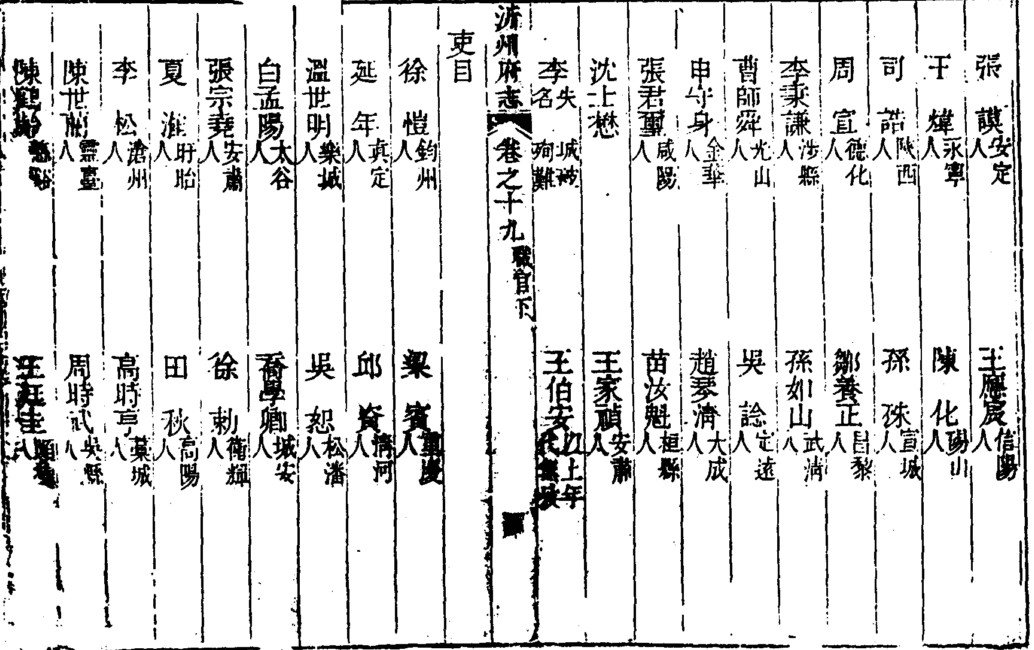 張謨安定人
王應辰信陽人
于煒永寧人
陳化碭山人
司誥陝西人
孫珠宣城人
周宣德化人
鄒養正昌黎人
李秉謙涉縣人
孫如山武清人
曹師舜光山人
吳諗定遠人
申守身金華人
趙琴清大成人
張君璽咸陽人
苗汝魁桓縣人
沈士懋
王家禎安肅人
李失名城破殉難
王伯安以上年代無攷
沂州府志 卷之十九 職官下
吏目
徐愷鈞州人
梁賓重慶人
延年真定人
邱資清河人
溫世明欒城人
吳恕松潘人
白孟陽太谷人
喬學卿城安
張宗堯安肅人
徐勑衛輝人
夏淮盱眙人
田秋高陽人
李松滄州人
高時亨藁城人
陳世龍靈臺人
周時武吳縣人